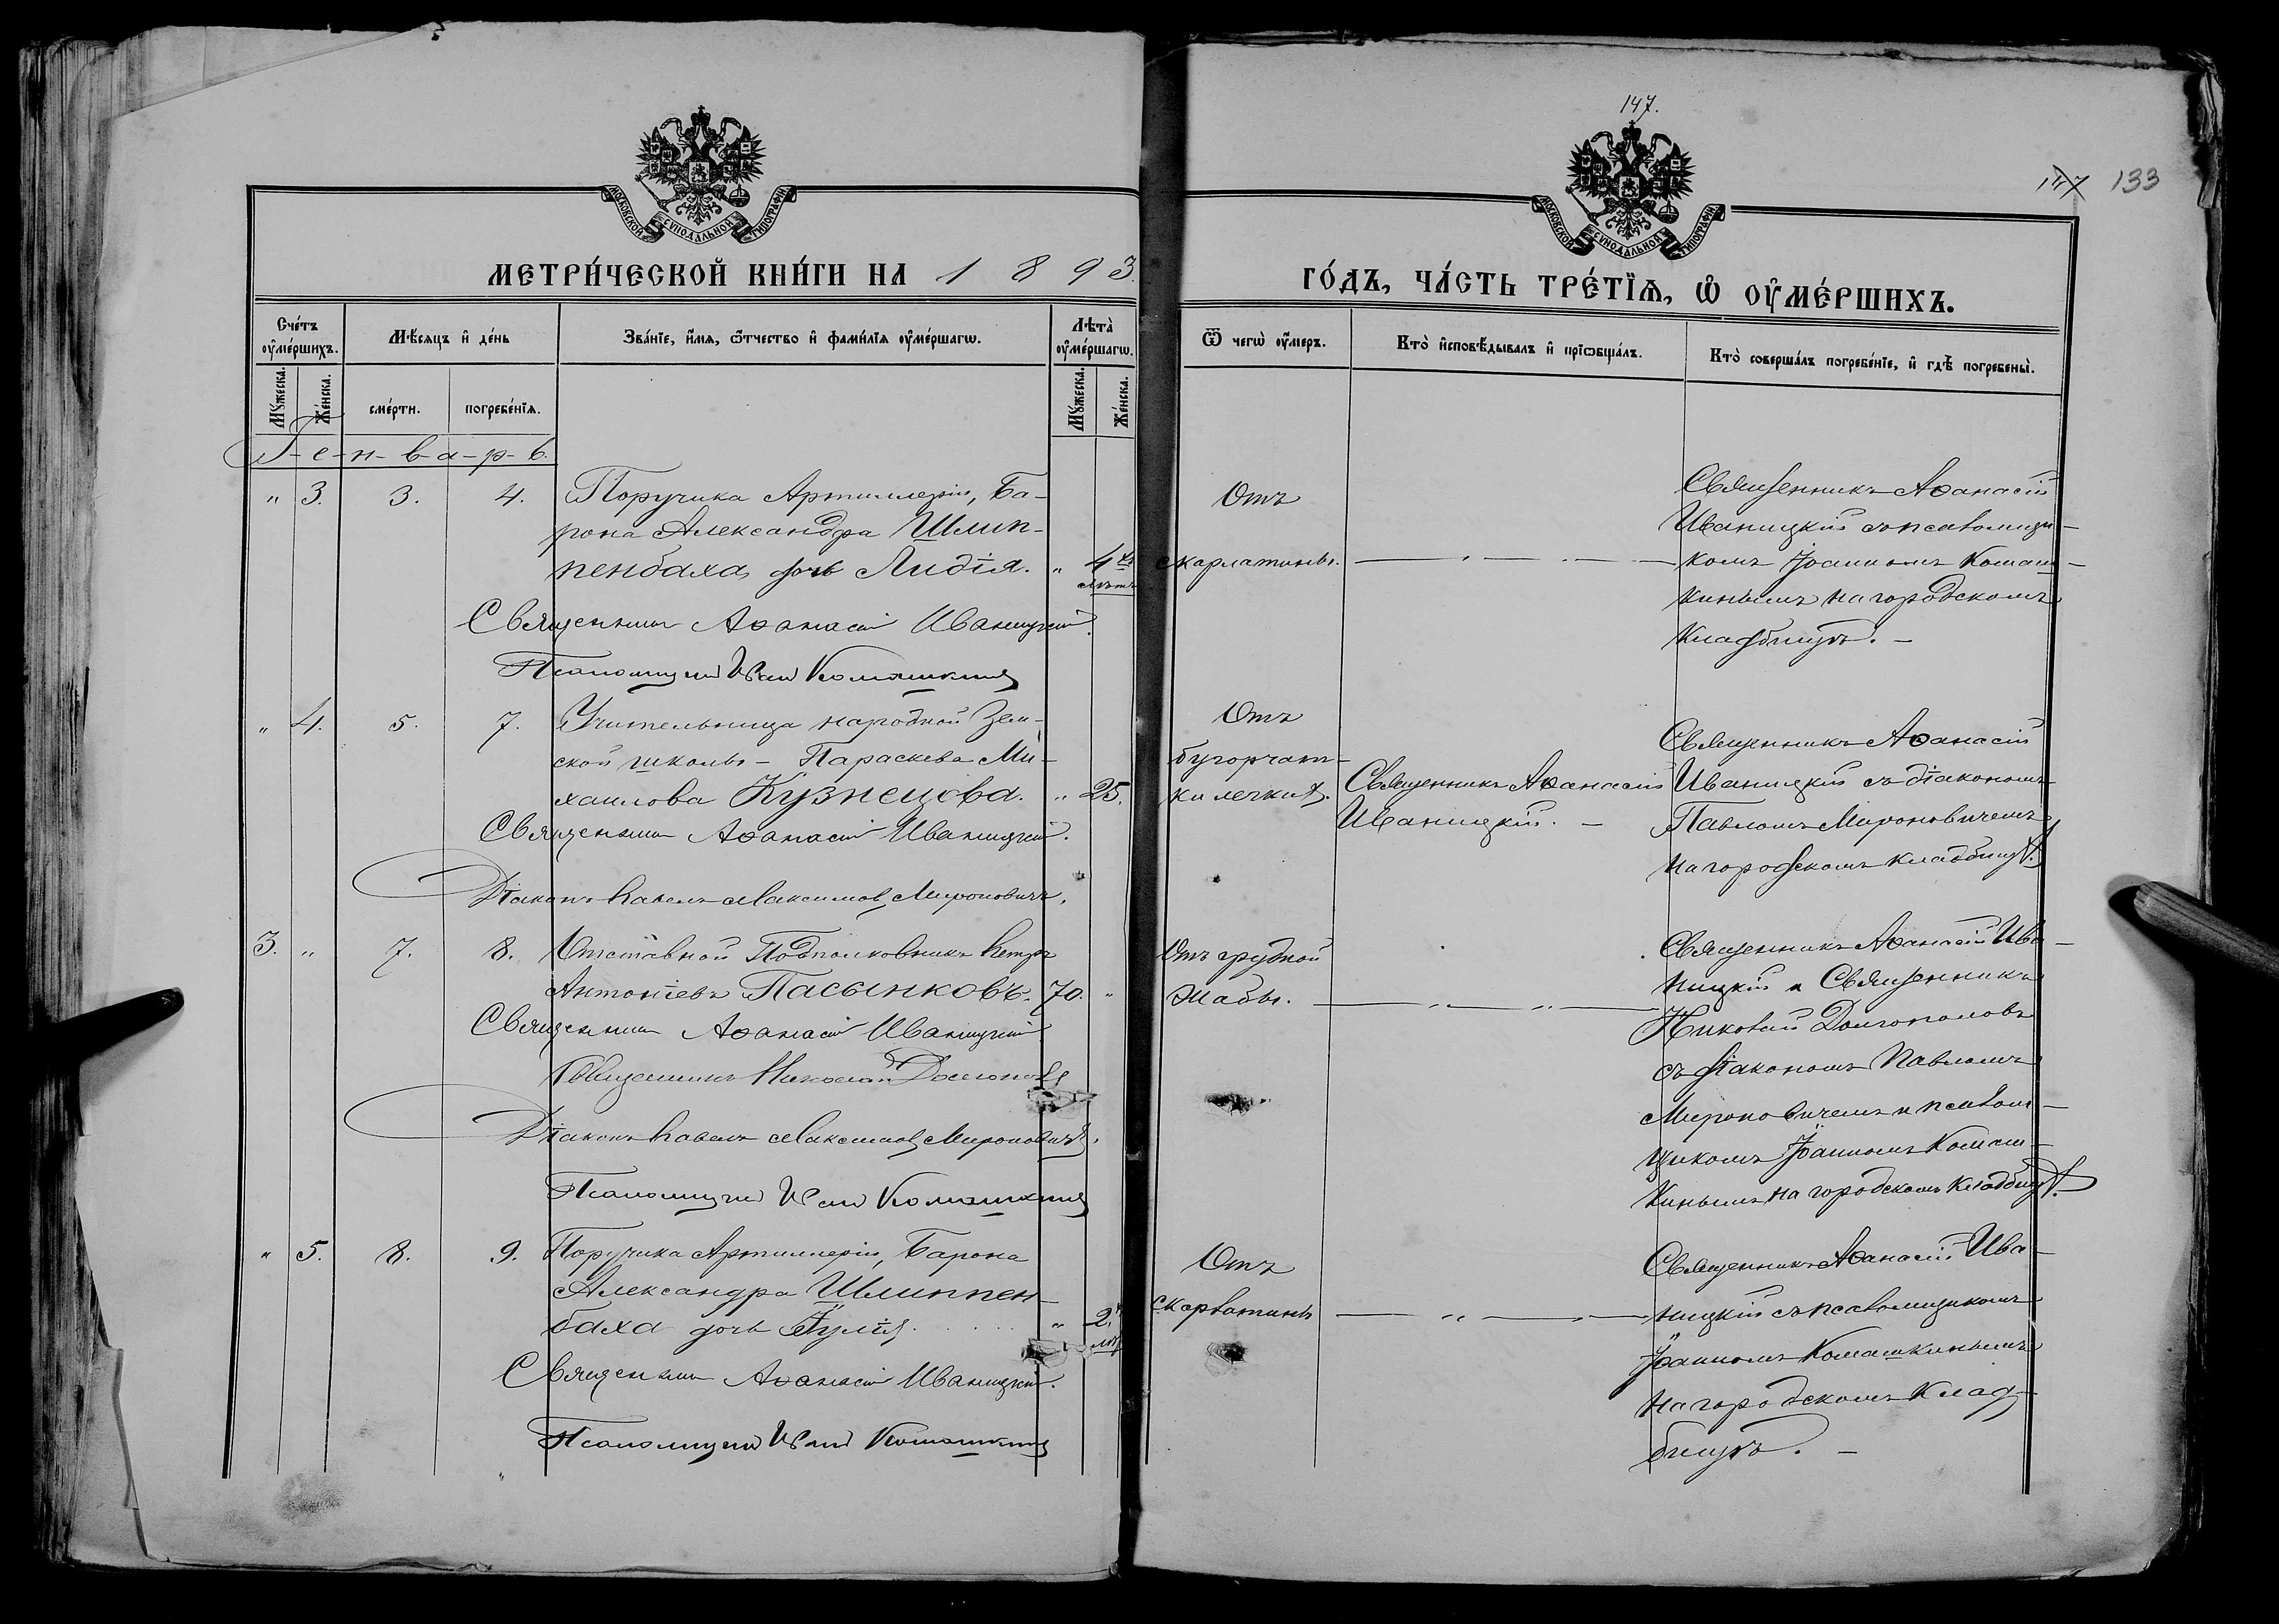 147.
147 133
МОСКОВСКОЙ СУНОДАЛЬНОЙ ТИПОГРАФІИ
МОСКОВСКОЙ СУНОДАЛЬНОЙ ТИПОГРАФІИ
МЕТРИ́ЧЕСКОЙ КНИ́ГИ НА 1893
ГО́ДЪ, ЧА́СТЬ ТРЕ́ТІѦ, Ѡ҆ ОУ҆МЕ́РШИХЪ.
Сче́тъ оу҆ме́ршихъ.
Мѣ́сѧцъ и҆ де́нь
Зва́нїе, и҆́мѧ, ѻ҆́тчество и҆ фами́лїѧ оу҆ме́ршагѡ.
Лѣта̀ оу҆ме́ршагѡ.
Ѿ чегѡ̀ оу҆́меръ.
Кто̀ и҆сповѣ́дывалъ и҆ прїѡбща́лъ.
Кто̀ соверша́лъ погребе́нїе, и҆ гдѣ̀ погребены̀.
Мꙋ́жеска.
Же́нска.
сме́рти.
погребе́нїѧ.
Мꙋ́жеска.
Же́нска.
Генварь.
" 3. 3. 4. Поручика Артиллеріи, Ба-
рона Александра Шлип-
пенбаха дочь Лидія. " 4хъ
лѣтъ
Священникъ Аѳанасій Иваницкій.
Псаломщикъ Иванъ Комашкинъ
Отъ
скарлатины.
Священникъ Аѳанасій
Иваницкій съ псаломщи-
комъ Іоанномъ Комаш-
кинымъ на городскомъ
кладбищѣ. –
" 4. 5. 7. Учительница народной Зем-
ской школы – Параскева Ми-
хаилова Кузнецова. " 25.
Священникъ Аѳанасій Иваницкій.
Діаконъ Павелъ Максимовъ Мироновичъ.
Отъ
бугорчат-
ки легкихъ.
Священникъ Аѳанасій
Иваницкій. –
Священникъ Аѳанасій
Иваницкій съ діакономъ
Павломъ Мироновичемъ
на городскомъ кладбищѣ.
3. " 7. 8. Отставной Подполковникъ Петръ
Антоніевъ Пасынковъ. 70. "
Священникъ Аѳанасій Иваницкій
Священникъ Николай Долгополовъ
Діаконъ Павелъ Максимовъ Мироновичъ.
Псаломщикъ Иванъ Комашкинъ
Отъ грудной
жабы.
Священникъ Аѳанасій Ива-
ницкій и Священникъ
Николай Долгополовъ
съ діакономъ Павломъ
Мироновичемъ и псалом-
щикомъ Іоанномъ Комаш-
кинымъ на городскомъ кладбищѣ.
" 5. 8. 9. Поручика Артиллеріи, Барона
Александра Шлиппен-
баха дочь Юлія " 2.
лѣтъ
Священникъ Аѳанасій Иваницкій.
Псаломщикъ Иванъ Комашкинъ
Отъ
скарлатины
Священникъ Аѳанасій Ива-
ницкій съ псаломщикомъ
Іоанномъ Комашкинымъ
на городскомъ клад-
бищѣ. –